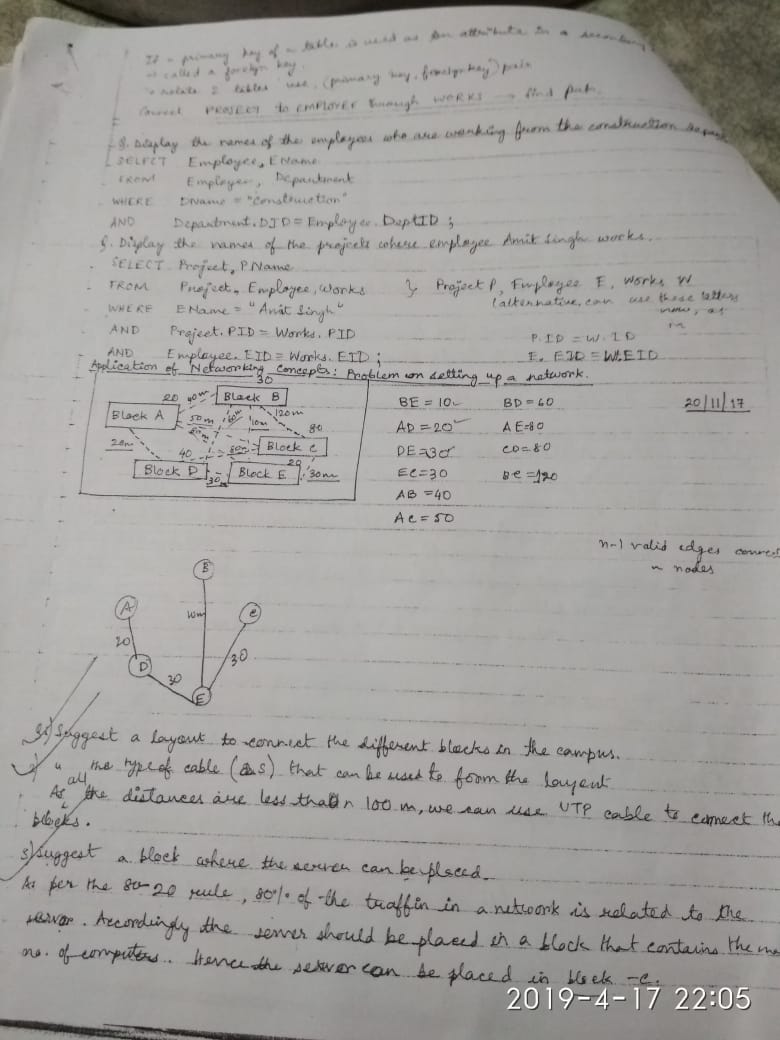 If a primary key of a table is used as an attribute in a secondary
is called a foreign key.
relate 2 tables use (primary key, foreign key) pair
Connect PROJECT to EMPLOYEE through WORKS → find path.
Q. Display the names of the employees who are working from the construction depart
SELECT Employee, EName
FROM Employee, Department
WHERE DName = "construction"
AND Department.DID = Employee.DeptID ;
Q. Display the names of the projects where employee Amit Singh works.
SELECT Project, PName
FROM Project, Employee, Works } Project P, Employee E, Works W
(alternative, can use these letters
now, as
WHERE EName = "Amit Singh"
AND Project.PID = Works.PID P.ID = W.ID
AND Employee.EID = Works.EID ; E.EID = W.EID
Application of Networking Concepts: Problem on setting up a network.
20/11/17
30
20 40m Block B
Block A 50m 60m 10m 120m
80m 80
20m 40 80m Block C
Block D 30m Block E 20 30m
BE = 10 BD = 60
AD = 20 AE = 80
DE = 30 CD = 80
EC = 30 BC = 120
AB = 40
AC = 50
n-1 valid edges connect
n nodes
B
A
10m
C
20
D
30
30
E
1) Suggest a layout to connect the different blocks in the campus.
2) " the type of cable (s) that can be used to form the layout
As all the distances are less than 100 m, we can use UTP cable to connect the
blocks.
3) Suggest a block where the server can be placed
As per the 80-20 rule, 80% of the traffin in a network is related to the
server. Accordingly the server should be placed in a block that contains the
no. of computers. Hence the server can be placed in block -C.
2019-4-17 22:05